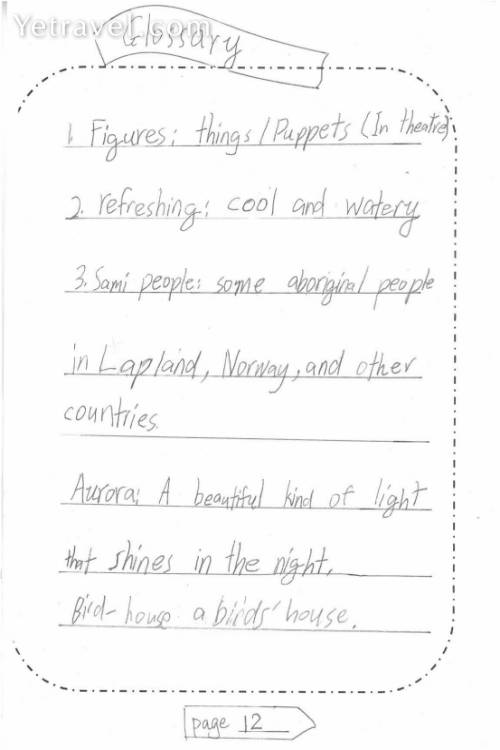 Yetravel.com
Glossary
1. Figures: things/Puppets (In theatre)
2. refreshing: cool and watery
3. Sami people: some aboriginal people
in Lapland, Norway, and other
countries.
Aurora: A beautiful kind of light
that shines in the night.
Bird-house a birds' house.
page 12